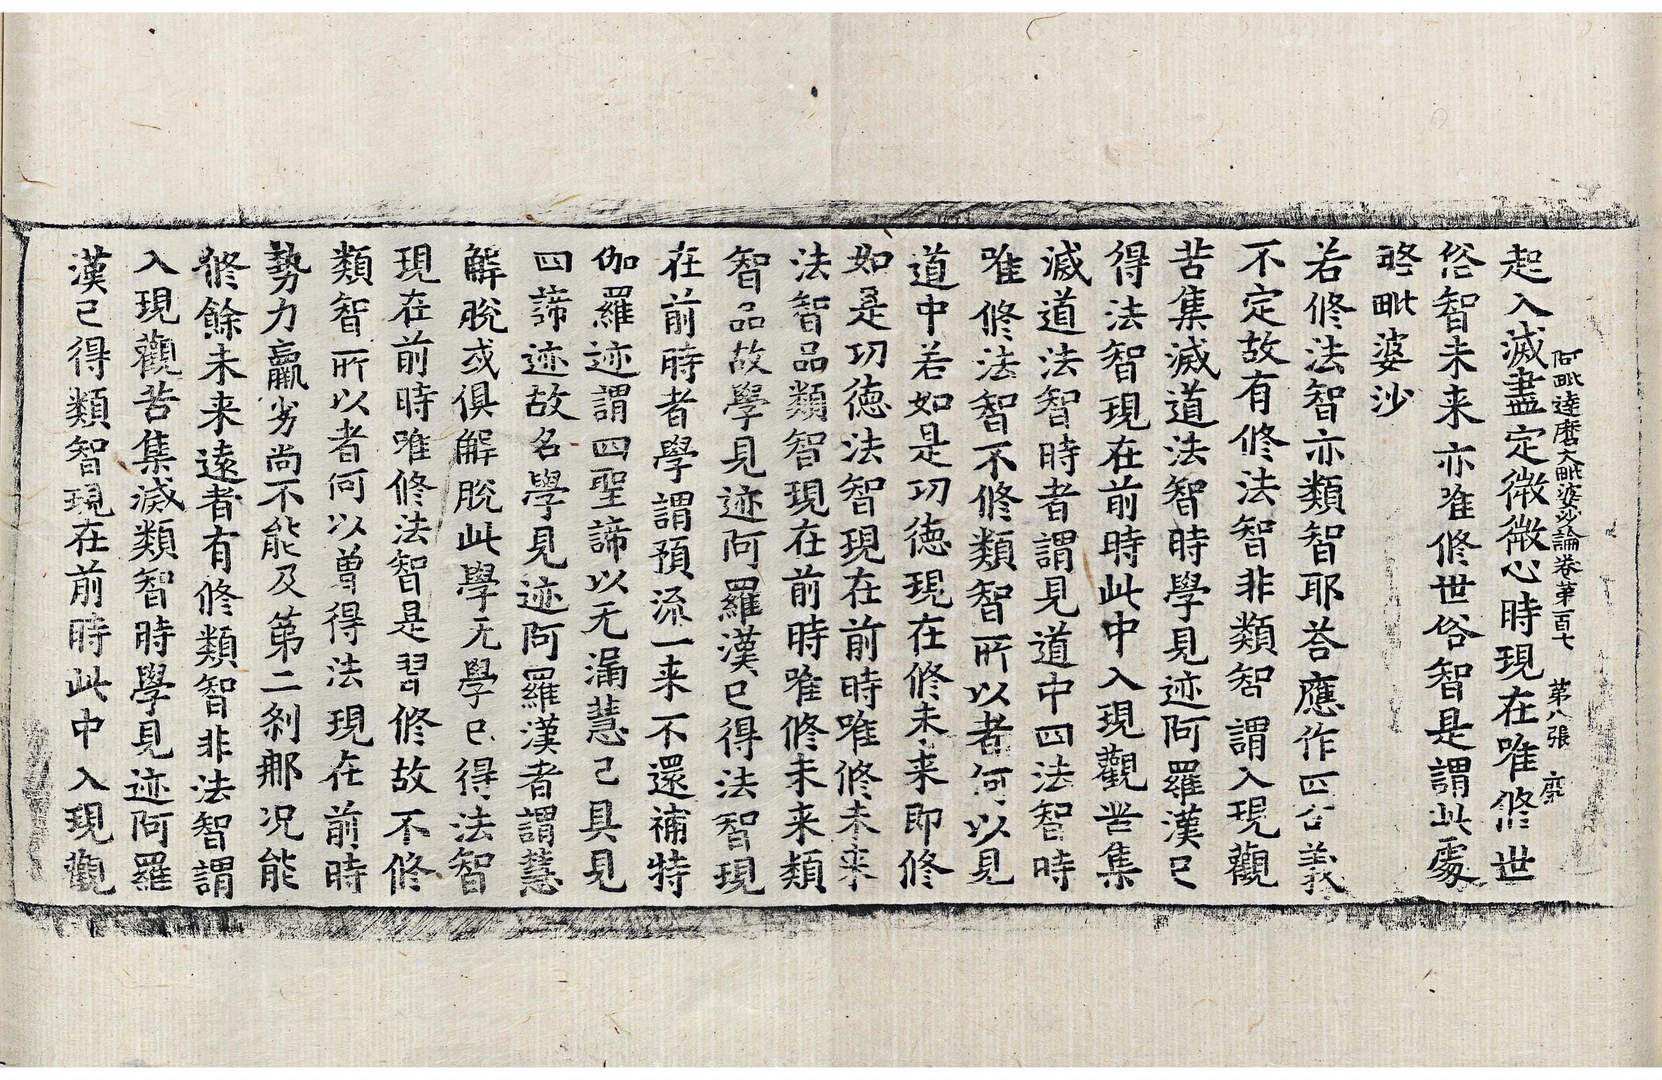 阿毗達磨大毗婆沙論卷第一百七 第八張 靡
起入滅盡定微微心時現在唯修世
俗智未来亦唯修世俗智是謂此處
略毗婆沙
若修法智亦類智耶荅應作四句義
不定故有修法智非類智謂入現觀
苦集滅道法智時學見迹阿羅漢已
得法智現在前時此中入現觀苦集
滅道法智時者謂見道中四法智時
唯修法智不修類智所以者何以見
道中若如是功徳現在修未来即修
如是功徳法智現在前時唯修未来
法智品類智現在前時唯修未来類
智品故學見迹阿羅漢已得法智現
在前時者學謂預流一来不還補特
伽羅迹謂四聖諦以无漏慧已具見
四諦迹故名學見迹阿羅漢者謂慧
解脫或俱解脫此學无學已得法智
現在前時唯修法智是習修故不修
類智所以者何以曾得法現在前時
勢力羸劣尚不能及第二剎那况能
修餘未来遠者有修類智非法智謂
入現觀苦集滅類智時學見迹阿羅
漢已得類智現在前時此中入現觀